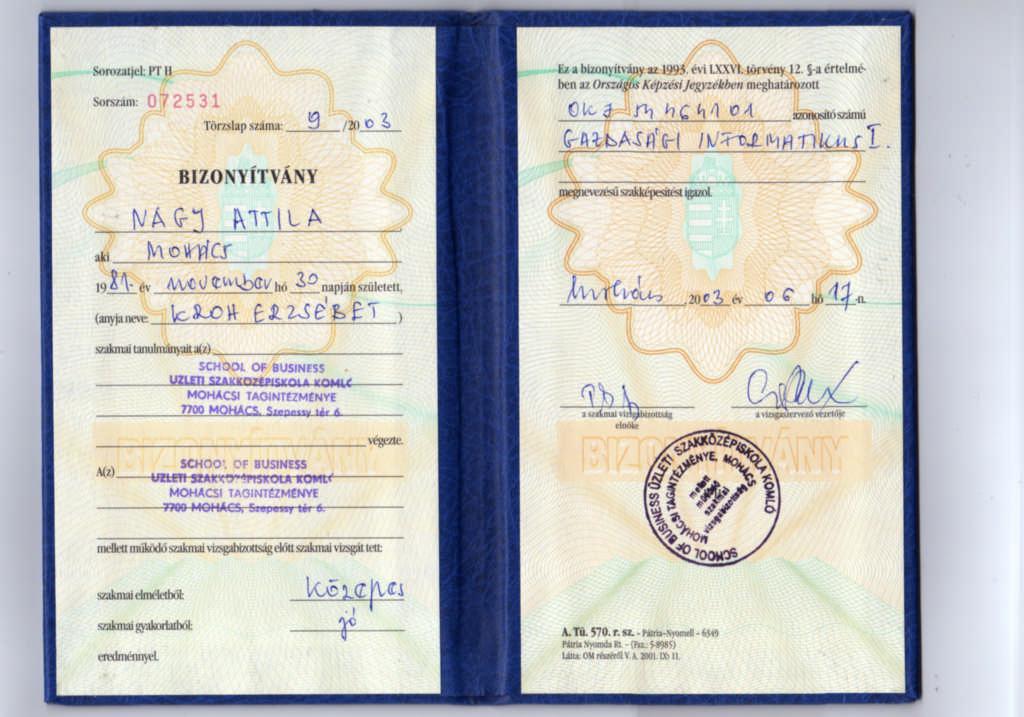 Sorozatjel: PT H
Sorszám: 072531
Törzslap száma: 9 /2003
BIZONYÍTVÁNY
NAGY ATTILA
aki MOHÁCS
1981. év november hó 30 napján született,
(anyja neve: KROH ERZSÉBET )
szakmai tanulmányait a(z)
SCHOOL OF BUSINESS
ÜZLETI SZAKKÖZÉPISKOLA KOMLÓ
MOHÁCSI TAGINTÉZMÉNYE
7700 MOHÁCS, Szepessy tér 6.
végezte.
BIZONYÍTVÁNY
A(z)
SCHOOL OF BUSINESS
ÜZLETI SZAKKÖZÉPISKOLA KOMLÓ
MOHÁCSI TAGINTÉZMÉNYE
7700 MOHÁCS, Szepessy tér 6.
mellett működő szakmai vizsgabizottság előtt szakmai vizsgát tett:
szakmai elméletből: közepes
szakmai gyakorlatból: jó
eredménnyel.
Ez a bizonyítvány az 1993. évi LXXVI. törvény 12. §-a értelmé-
ben az Országos Képzési Jegyzékben meghatározott
OKJ 54464101 azonosító számú
GAZDASÁGI INFORMATIKUS I.
megnevezésű szakképesítést igazol.
Mohács, 2003 év 06 hó 17-n.
a szakmai vizsgabizottság
elnöke
a vizsgaszervező vezetője
BIZONYÍTVÁNY
SCHOOL OF BUSINESS ÜZLETI SZAKKÖZÉPISKOLA KOMLÓ
MOHÁCSI TAGINTÉZMÉNYE, MOHÁCS
mellett
működő
szakmai
vizsgabizottság
7700
A. Tü. 570. r. sz. - Pátria-Nyomell - 6349
Pátria Nyomda Rt. - (Fsz.: 5-8985)
Látta: OM részéről V. A. 2001. Db 11.